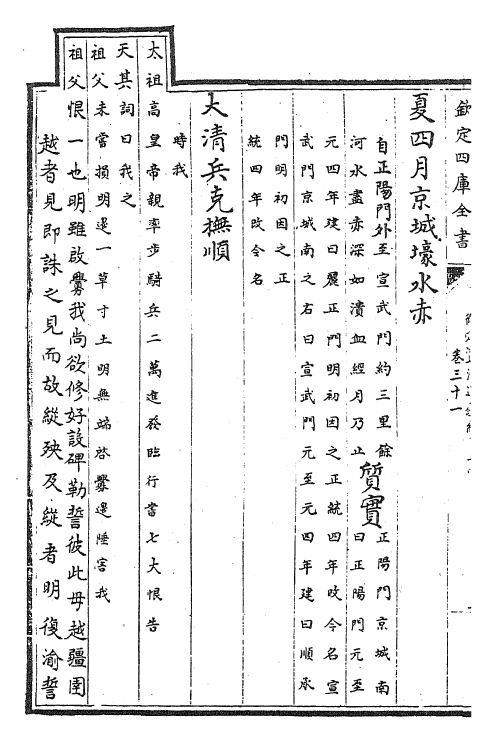 欽定四庫全書
卷三十一
夏四月京城壕水赤
自正陽門外至宣武門約三里餘
河水盡赤深如漬血經月乃止
質實
正陽門京城南
曰正陽門元至
元四年建曰麗正門明初因之正統四年改今名宣
武門京城南之右曰宣武門元至元四年建曰順承
門明初因之正
統四年改今名
大清兵克撫順
時我
太祖高皇帝親率步騎兵二萬進發臨行書七大恨告
天其詞曰我之
祖父未嘗損明邊一草寸土明無端啓釁邊陲害我
祖父恨一也明雖啟釁我尚欲修好設碑勒誓彼此毋越疆圉
越者見即誅之見而故縱殃及縱者明復渝誓